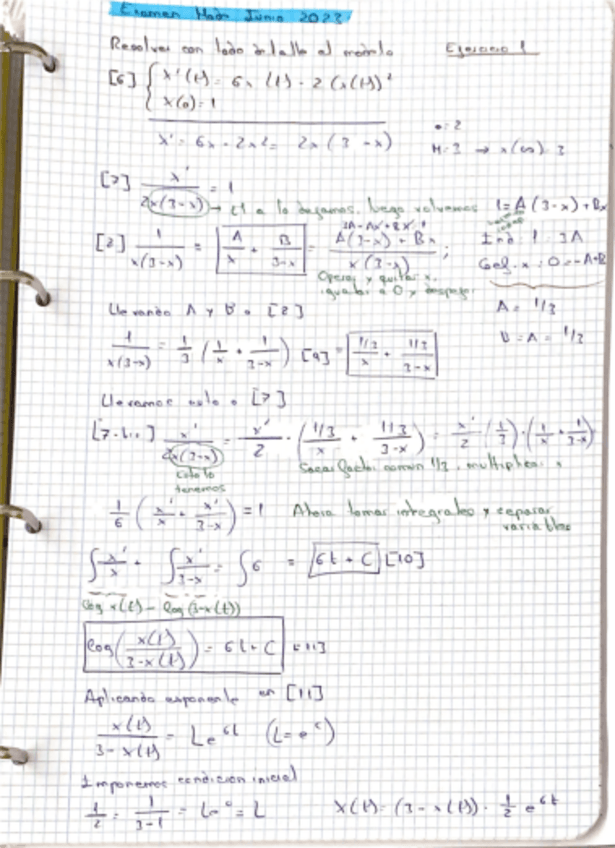 Examen Mods Junio 2023
Resolver con todo detalle el modelo Ejercicio 1
[6] { x'(t) = 6x(t) - 2(x(t))²
x(0) = 1
x' = 6x - 2x² = 2x(3-x)
M=3 → x(∞)=3
[7] x' / 2x(3-x) = 1
luego volvemos 1 = A(3-x) + Bx
[8] 1 / x(3-x) = A/x + B/3-x = A(3-x) + Bx / x(3-x) ; Ind: 1 = 3A
Coef. x: 0 = -A+B
Operar y quitar x,
igualar a 0 y despejar
A = 1/3
Llevando A y B a [8]
B = A = 1/3
1 / x(3-x) = 1/3 (1/x + 1/3-x) [9] = 1/3 / x + 1/3 / 3-x
Llevamos esto a [7]
x' / 2x(3-x) = x'/2 · (1/3 / x + 1/3 / 3-x) = x'/2 (1/3) · (1/x + 1/3-x)
Esto lo
tenemos
Sacar factor común 1/3, multiplicar
1/6 (x'/x + x'/3-x) = 1 Ahora tomar integrales y separar
variables
∫ x'/x + ∫ x'/3-x = ∫ 6 = 6t + C [10]
log x(t) - log(3-x(t))
log( x(t) / 3-x(t) ) = 6t + C [11]
Aplicando exponente en [11]
x(t) / 3-x(t) = L e^6t (L = e^c)
Imponemos condicion inicial
1/2 = 1 / 3-1 = Le⁰ = L x(t) = (3-x(t)) · 1/2 e^6t